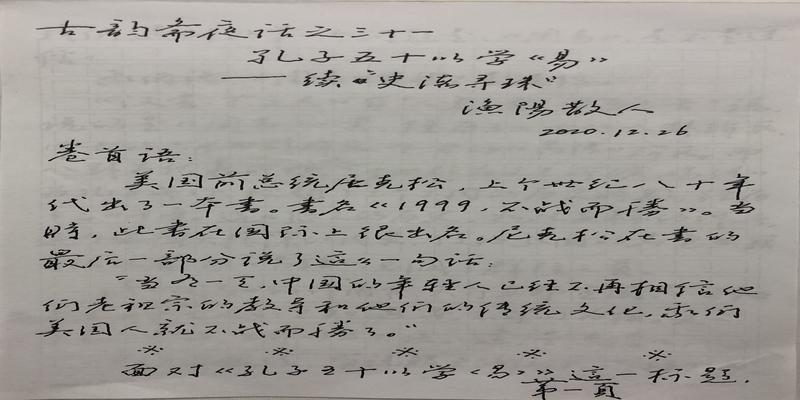 古韵斋夜话之三十一
孔子五十以学《易》
——续“史海寻珠”
渔陽散人
2020.12.26
卷首语：
美国前总统尼克松，上个世纪八十年
代出了一本書。書名《1999，不战而勝》。当
時，此書在国际上很出名。尼克松在書的
最后一部分说了這么一句话：
“当有一天，中国的年轻人已经不再相信他
们老祖宗的教导和他们的传统文化，我们
美国人就不战而勝了。”
※ ※ ※ ※ ※
面对《孔子五十以学《易》》這一标题，
第一頁